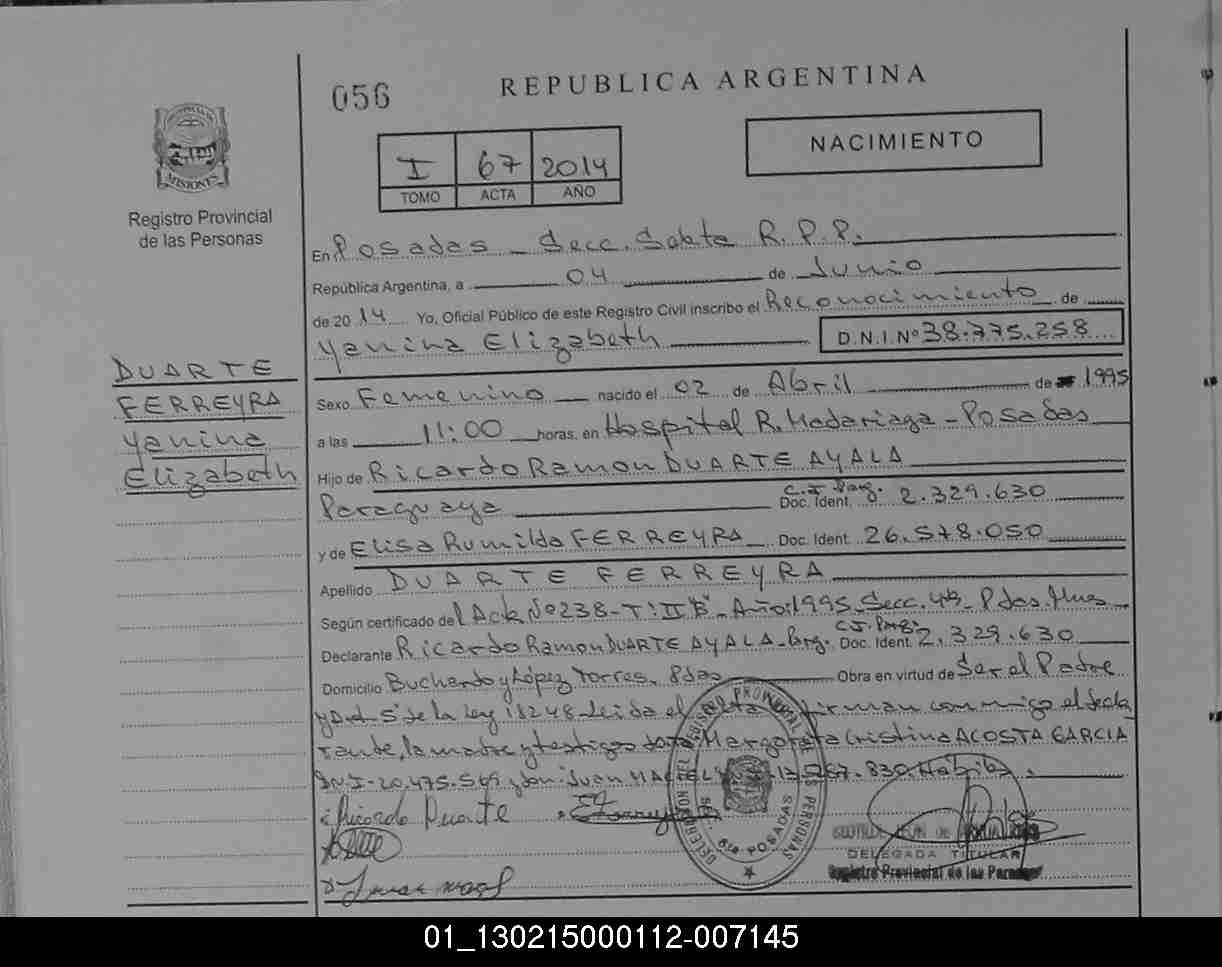 056
REPUBLICA ARGENTINA
NACIMIENTO
I 67 2014
TOMO ACTA AÑO
MISIONES
Registro Provincial
de las Personas
En Posadas - Secc. Sexta R.P.P.
República Argentina, a 04 de Junio
de 2014 Yo, Oficial Público de este Registro Civil inscribo el Reconocimiento de
Yanina Elizabeth D.N.I. Nº 38.775.258
DUARTE
FERREYRA
Yanina
Elizabeth
Sexo Femenino nacido el 02 de Abril de 1995
a las 11:00 horas, en Hospital R. Madariaga - Posadas
Hijo de Ricardo Ramon DUARTE AYALA
Paraguaya C.I. Parg. Doc. Ident. 2.329.630
y de Elisa Rumilda FERREYRA Doc. Ident. 26.578.050
Apellido DUARTE FERREYRA
Según certificado del Acta Nº 238 - T: II "B" - Año: 1995 - Secc. 4ta - Pdas. Mnes
Declarante Ricardo Ramon DUARTE AYALA - Parg. C.I. Parg. Doc. Ident. 2.329.630
Domicilio Buchardo y López Torres, Pdas Obra en virtud de Ser el Padre
y Art. 5 de la Ley 18248 - Leída el acta firman conmigo el decla
rante, la madre y testigos doña Margarita Cristina ACOSTA GARCIA
DNI - 20.475.569 y don Juan 13. 830. Hábiles.
Ricardo Duarte
DELEGADA TITULAR
Registro Provincial de las Personas
01_130215000112-007145